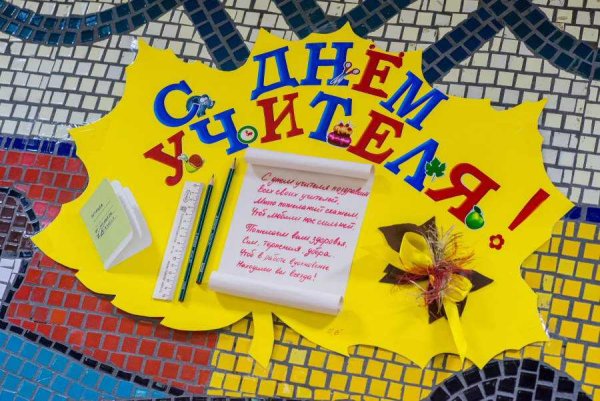 С ДНЁМ
УЧИТЕЛЯ!
С днём учителя поздравим
Всех своих учителей,
Много пожеланий скажем,
Чтоб любили нас сильней.
Пожелаем вам здоровья,
Сил, терпения, добра.
Чтоб в работе вдохновенье
Находили вы всегда!